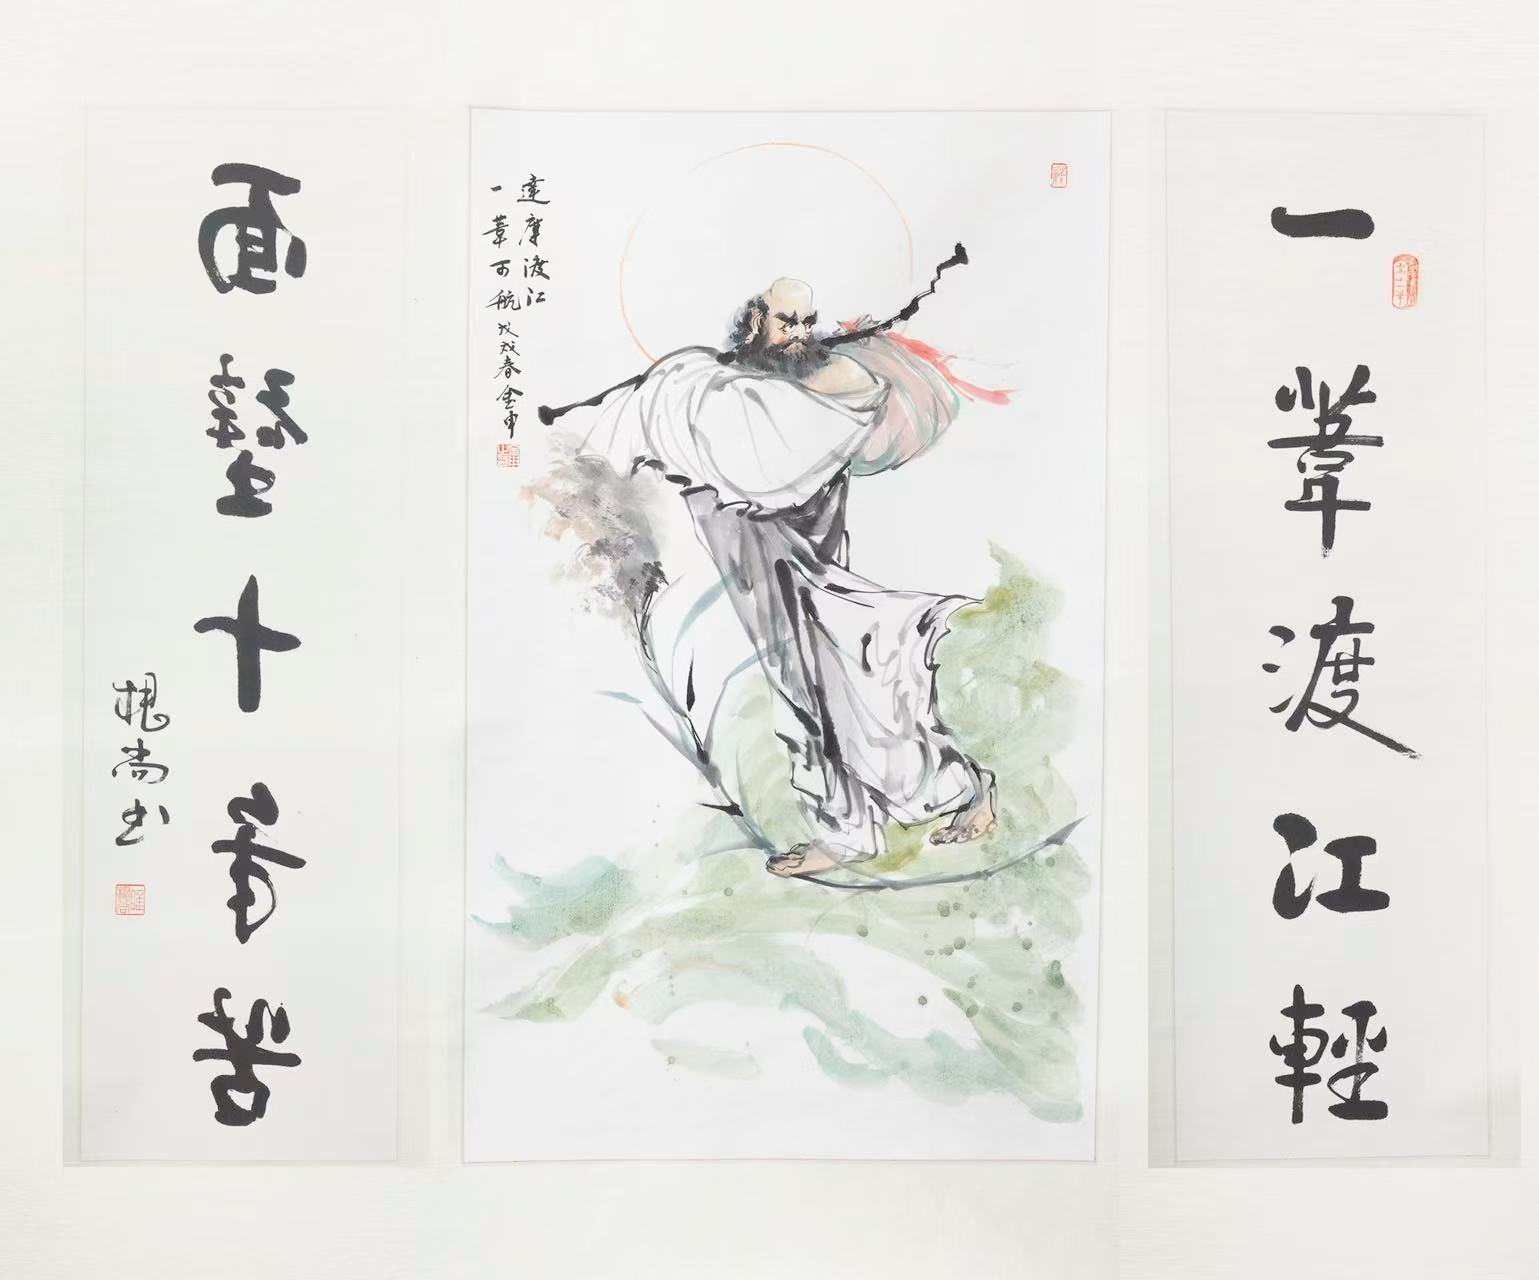 一葦渡江輕
達摩渡江
一葦可航 戊戌春 金申
面壁十年苦
根尚书